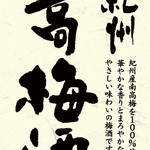 紀州
高梅酒
紀州産南高梅を100%
華やかな香りとまろやかな
やさしい味わいの梅酒です